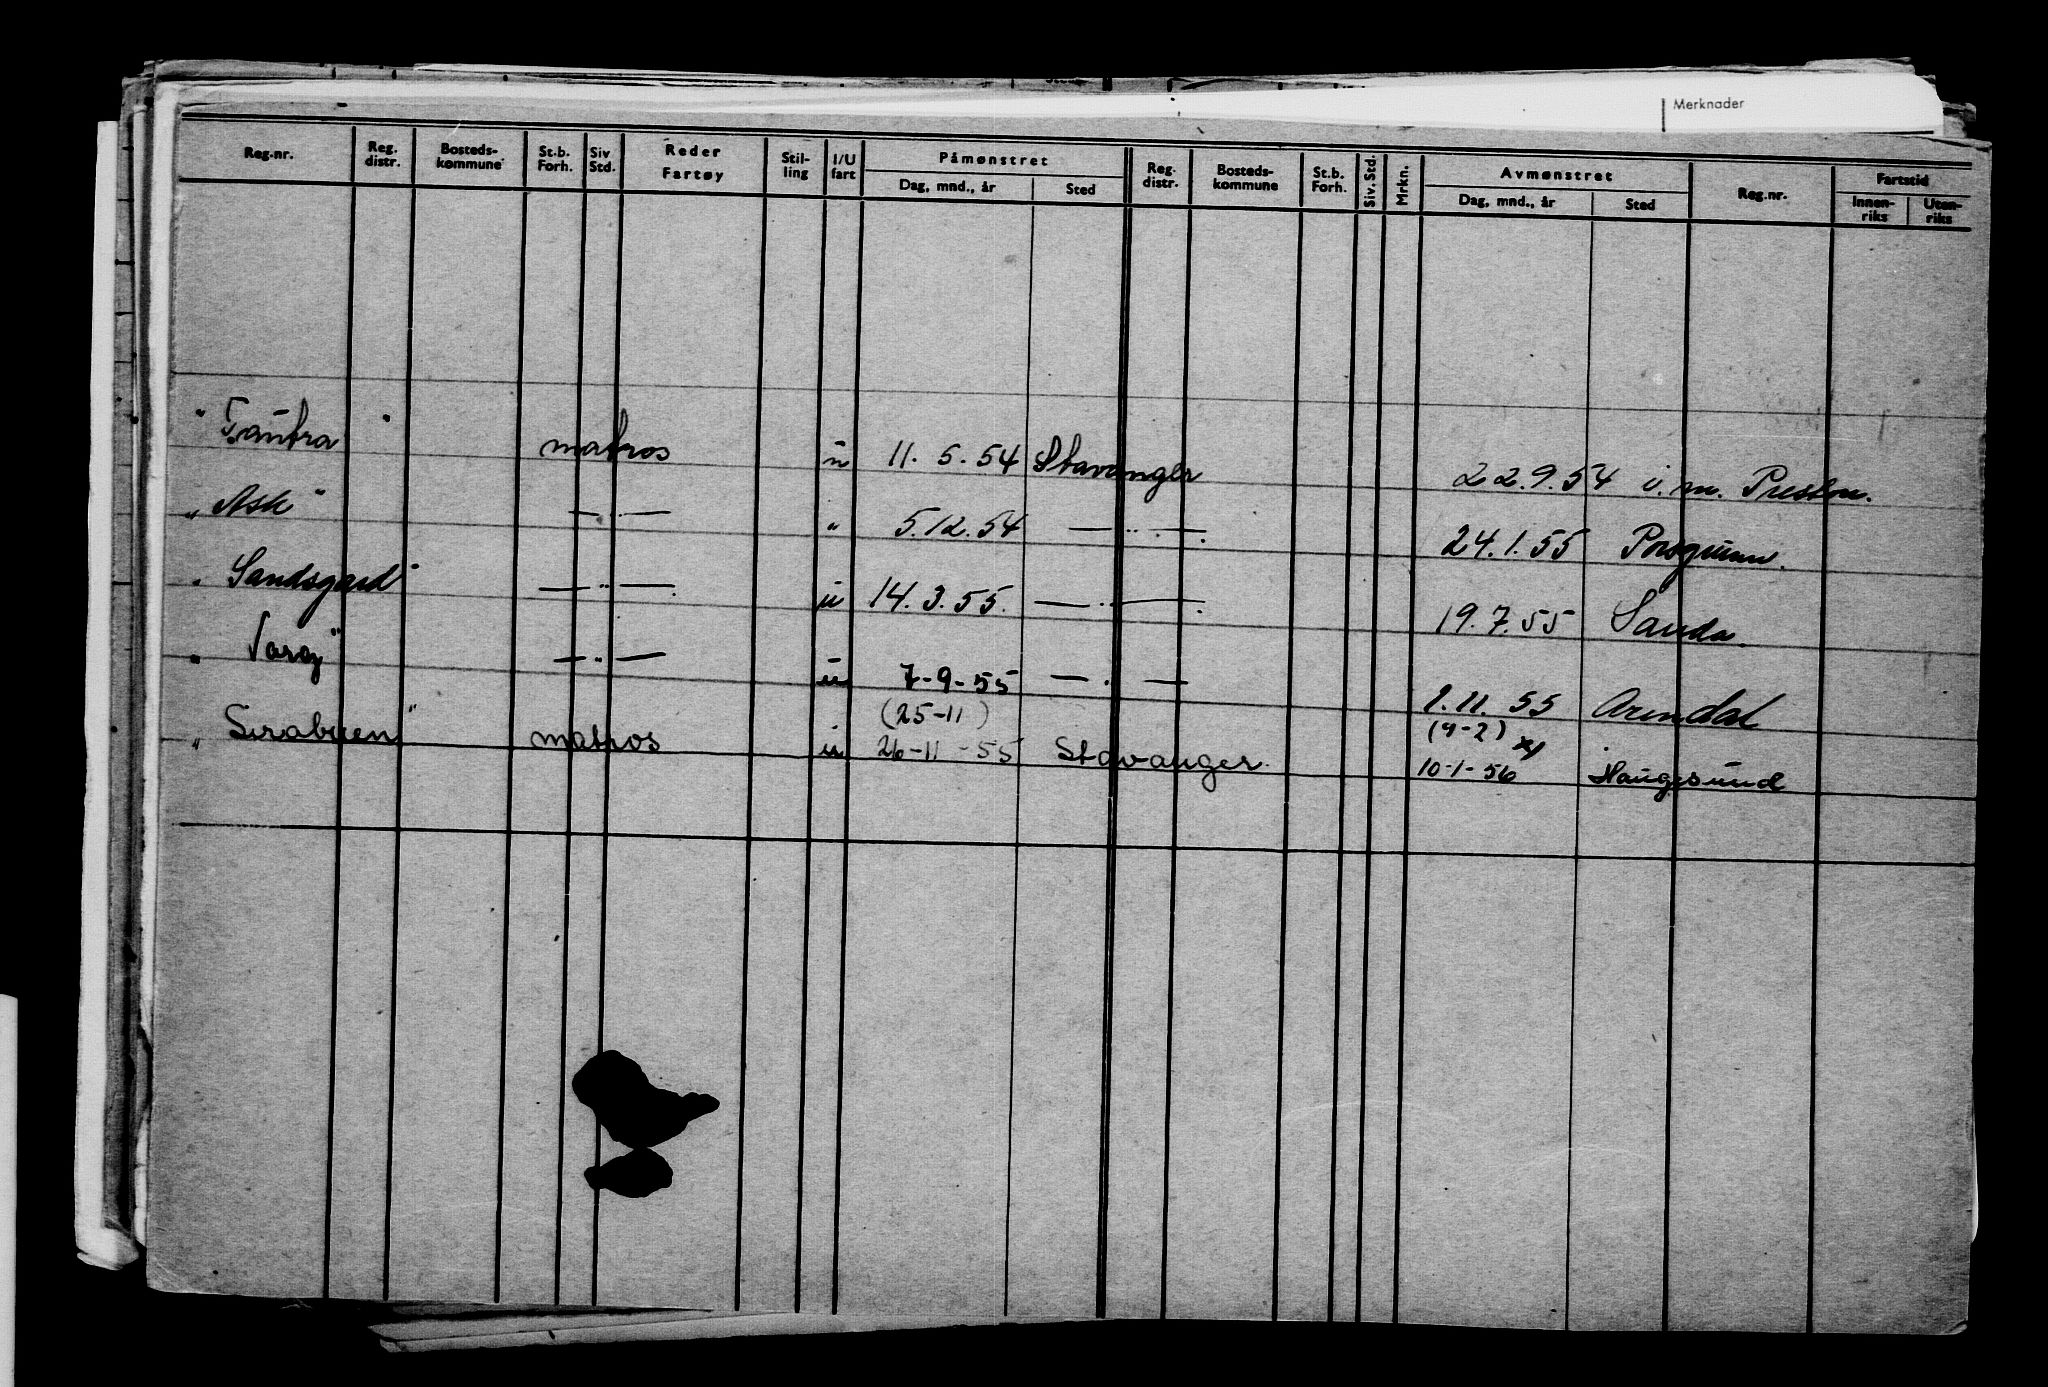 Merknader
Reg.nr. Reg. distr. Bosteds-kommune St.b. Forh. Siv Std. Reder Fartøy Stil-ling I/U fart Påmønstret Dag, mnd., år Sted Reg. distr. Bosteds-kommune St.b. Forh. Siv. Std. Mrkn. Avmønstret Dag, mnd., år Sted Reg.nr. Fartstid Innen-riks Uten-riks
" Tautra " matros u 11. 5. 54 Stavanger 22.9.54 i.m. Preston.
" Ask " — " — " 5.12.54 — " — . 24.1.55 Porsgrunn.
" Sandsgard " — " — . u 14.3.55. — " — . 19.7.55 Sauda.
" Varøy " — " — u 7-9-55 — " — 1.11.55 Arendal
(25-11) (9-2)
" Sirabuen " matros u 26-11-55 Stavanger. 10-1-56 x) Haugesund